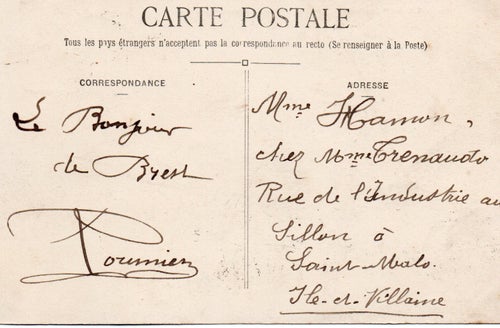 CARTE POSTALE
Tous les pays étrangers n'acceptent pas la correspondance au recto (Se renseigner à la Poste)
CORRESPONDANCE
Le Bonjour
de Brest
ADRESSE
Mme Hamon,
chez Mme Trenaudo
Rue de l'Industrie au
Sillon à
Saint-Malo.
Ile-et-Villaine